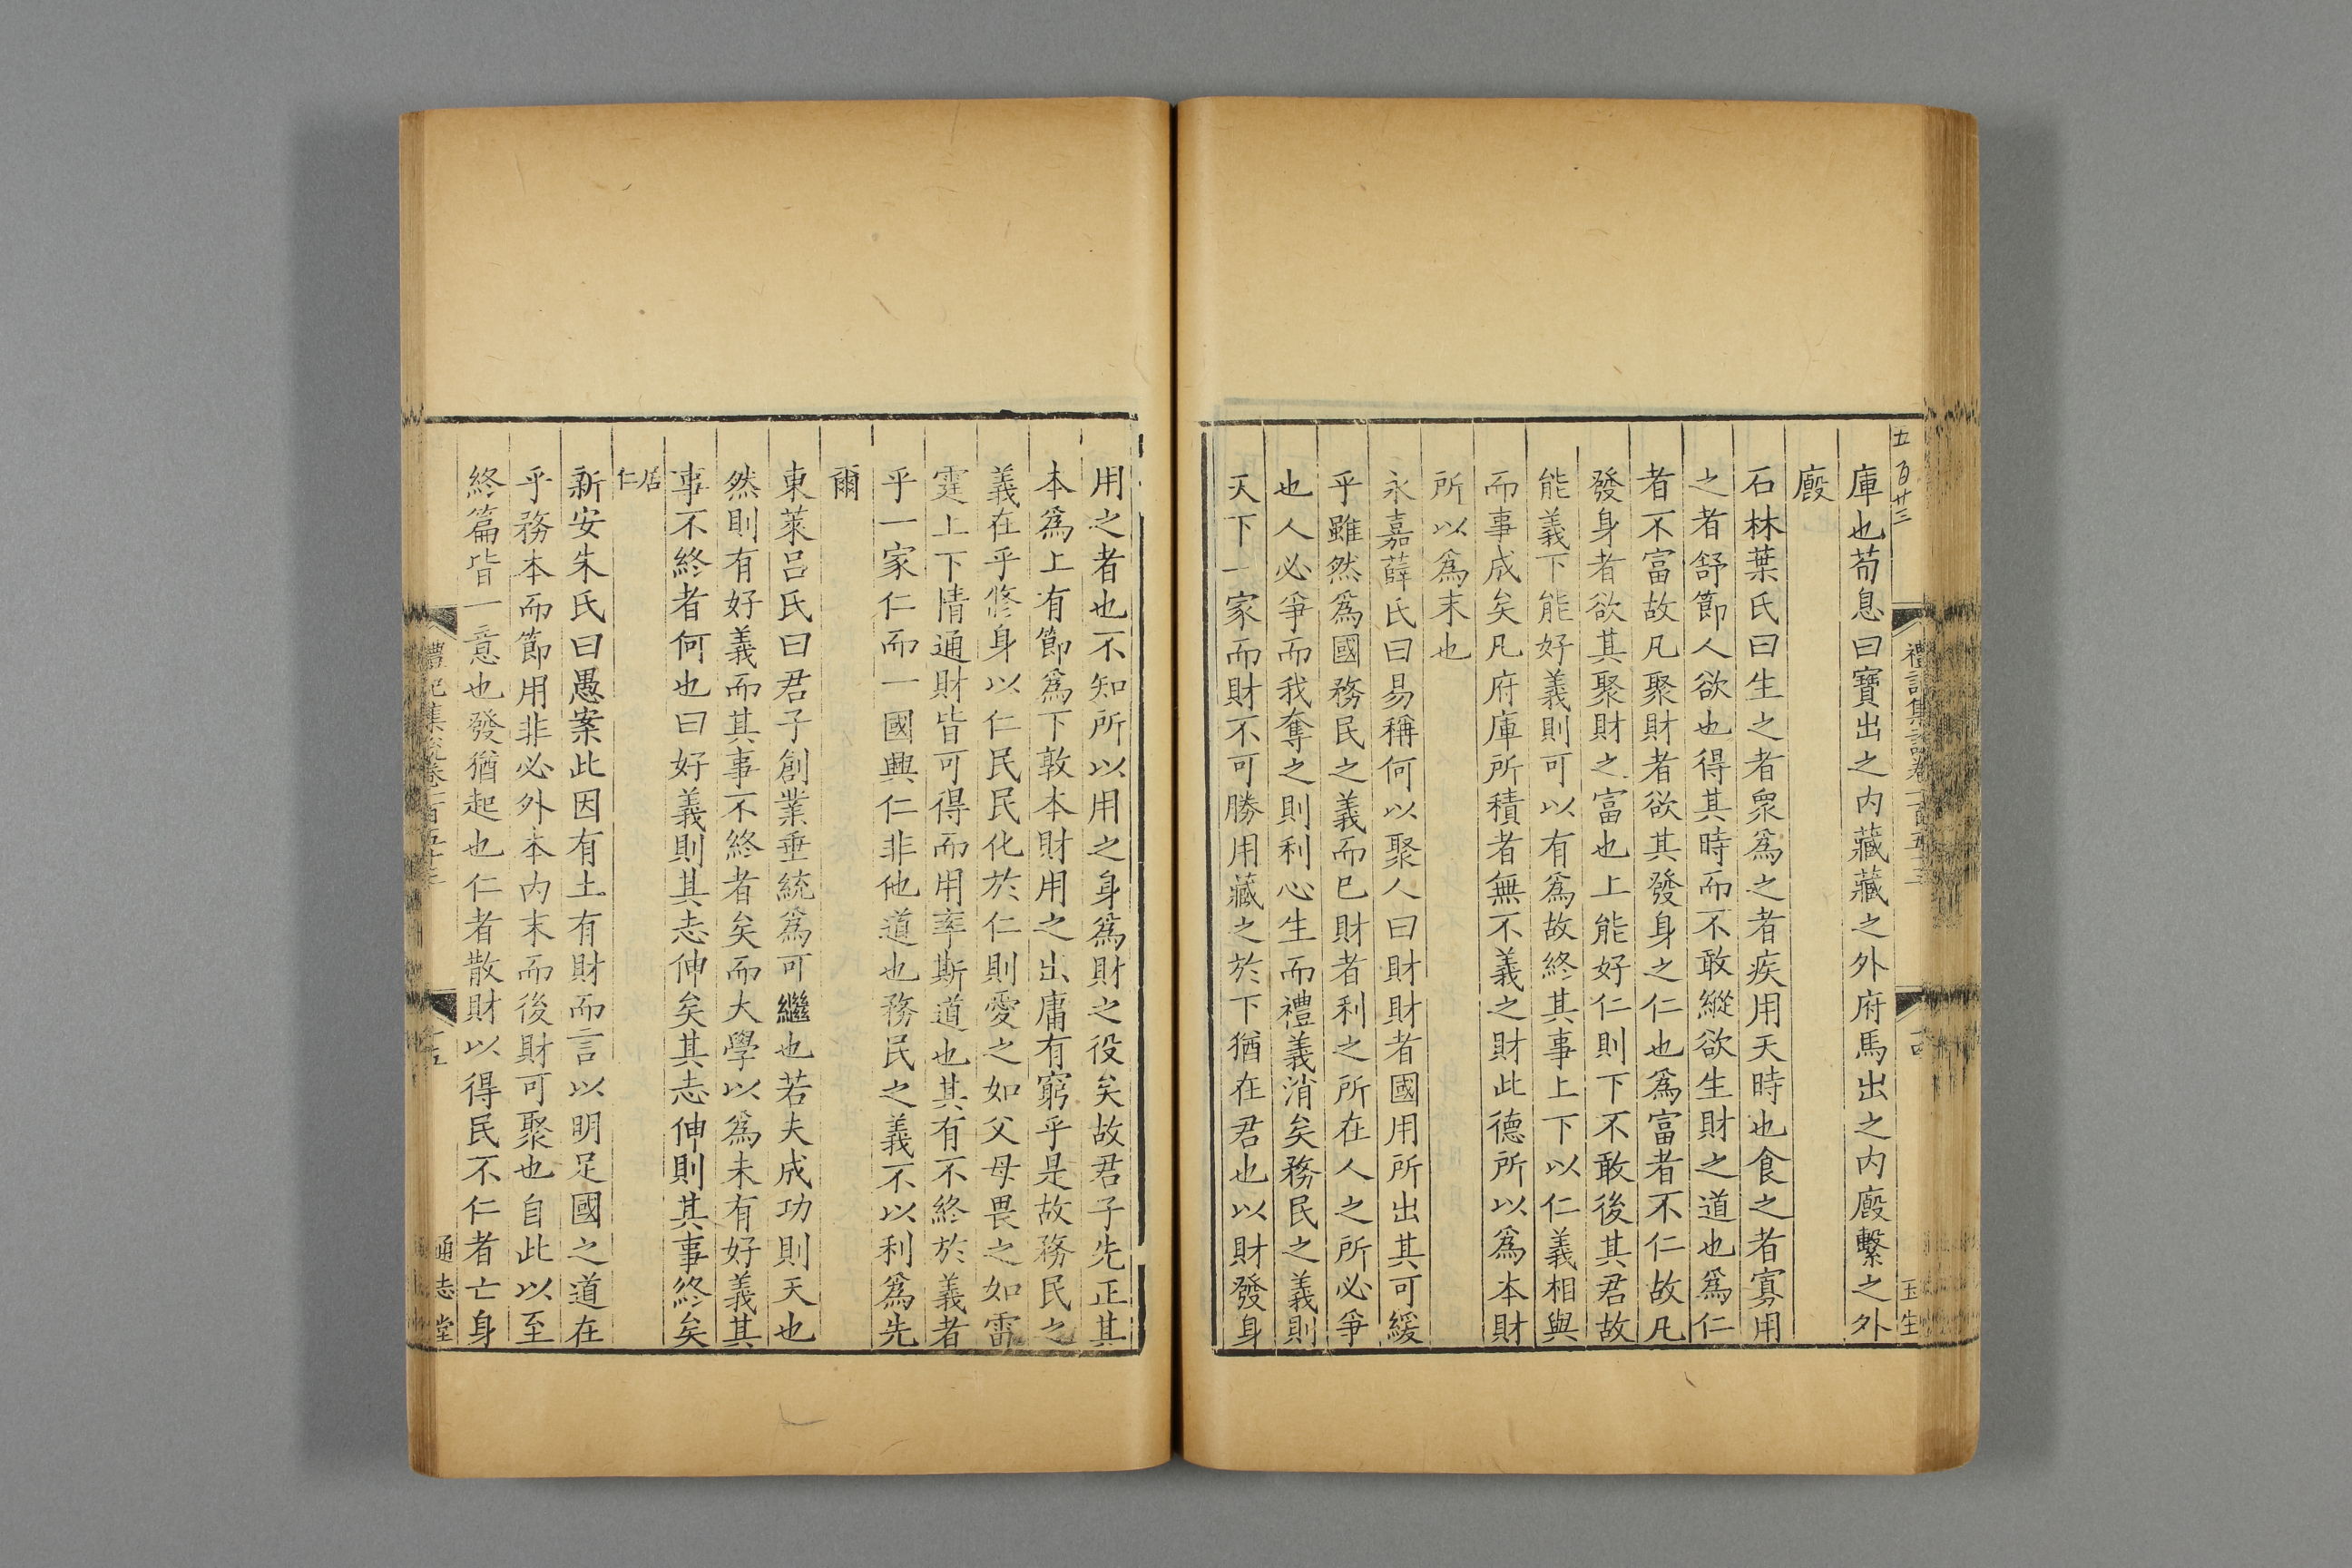 五百廿三
禮記集說卷一百五十三
玉生
庫也荀息曰寶出之内藏藏之外府馬出之内廄繫之外
廄
石林葉氏曰生之者衆爲之者疾用天時也食之者寡用
之者舒節人欲也得其時而不敢縱欲生財之道也爲仁
者不富故凡聚財者欲其發身之仁也爲富者不仁故凡
發身者欲其聚財之富也上能好仁則下不敢後其君故
能義下能好義則可以有爲故終其事上下以仁義相與
而事成矣凡府庫所積者無不義之財此德所以爲本財
所以爲末也
永嘉薛氏曰易稱何以聚人曰財財者國用所出其可緩
乎雖然爲國務民之義而已財者利之所在人之所必爭
也人必爭而我奪之則利心生而禮義消矣務民之義則
天下一家而財不可勝用藏之於下猶在君也以財發身
用之者也不知所以用之身爲財之役矣故君子先正其
本爲上有節爲下敦本財用之出庸有窮乎是故務民之
義在乎修身以仁民民化於仁則愛之如父母畏之如雷
霆上下情通財皆可得而用率斯道也其有不終於義者
乎一家仁而一國興仁非他道也務民之義不以利爲先
爾
東萊呂氏曰君子創業垂統爲可繼也若夫成功則天也
然則有好義而其事不終者矣而大學以爲未有好義其
事不終者何也曰好義則其志伸矣其志伸則其事終矣
居仁
新安朱氏曰愚案此因有土有財而言以明足國之道在
乎務本而節用非必外本内末而後財可聚也自此以至
終篇皆一意也發猶起也仁者散財以得民不仁者亡身
禮記集說卷一百五十三
十五
通志堂